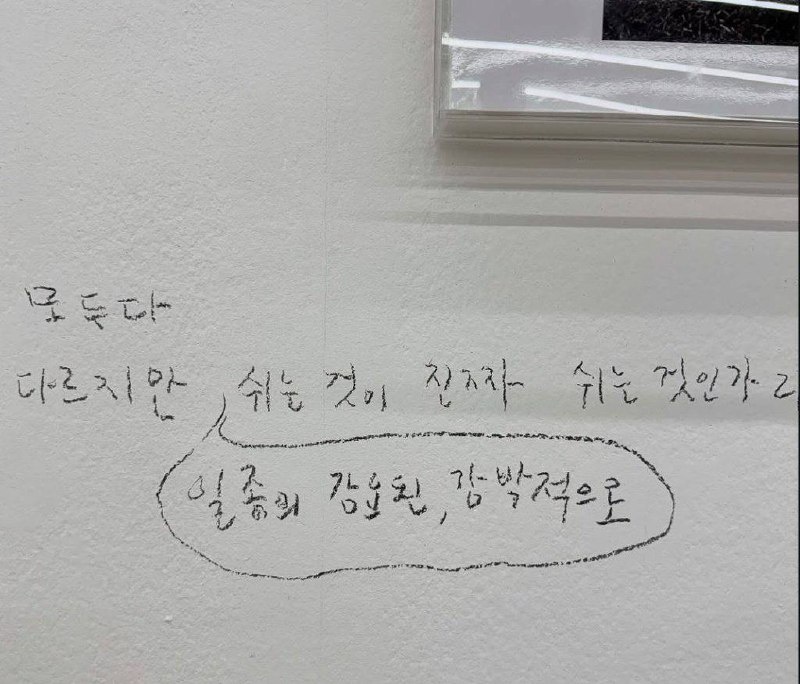 모두다
다르지만, 쉬는 것이 진짜 쉬는 것인가
일종의 강요된, 강박적으로